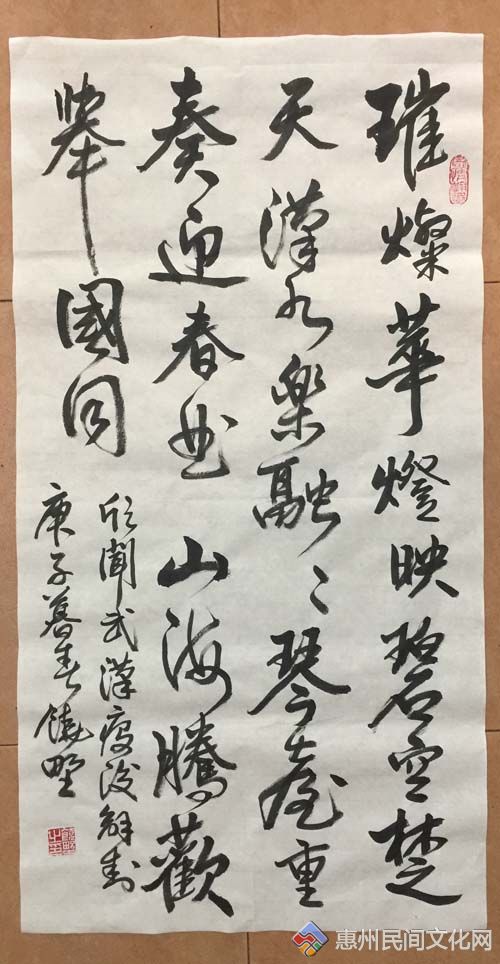 璀燦華燈映碧空楚
天漢水樂融〻琴臺重
奏迎春曲山海騰歡
舉國同
欣聞武漢疫後解封
庚子暮春饒野
惠州民间文化网